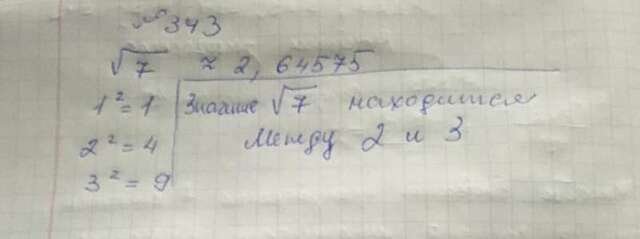 №343
√7 ≈ 2,64575
1² = 1
2² = 4
3² = 9
Значение √7 находится
между 2 и 3